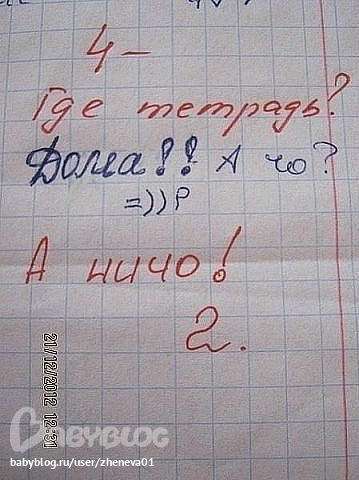 4-
Где тетрадь?
Дома!! А чо?
=))Р
А ничо!
2.
21/12/2012 12:31
BABYBLOG
babyblog.ru/user/zheneva01